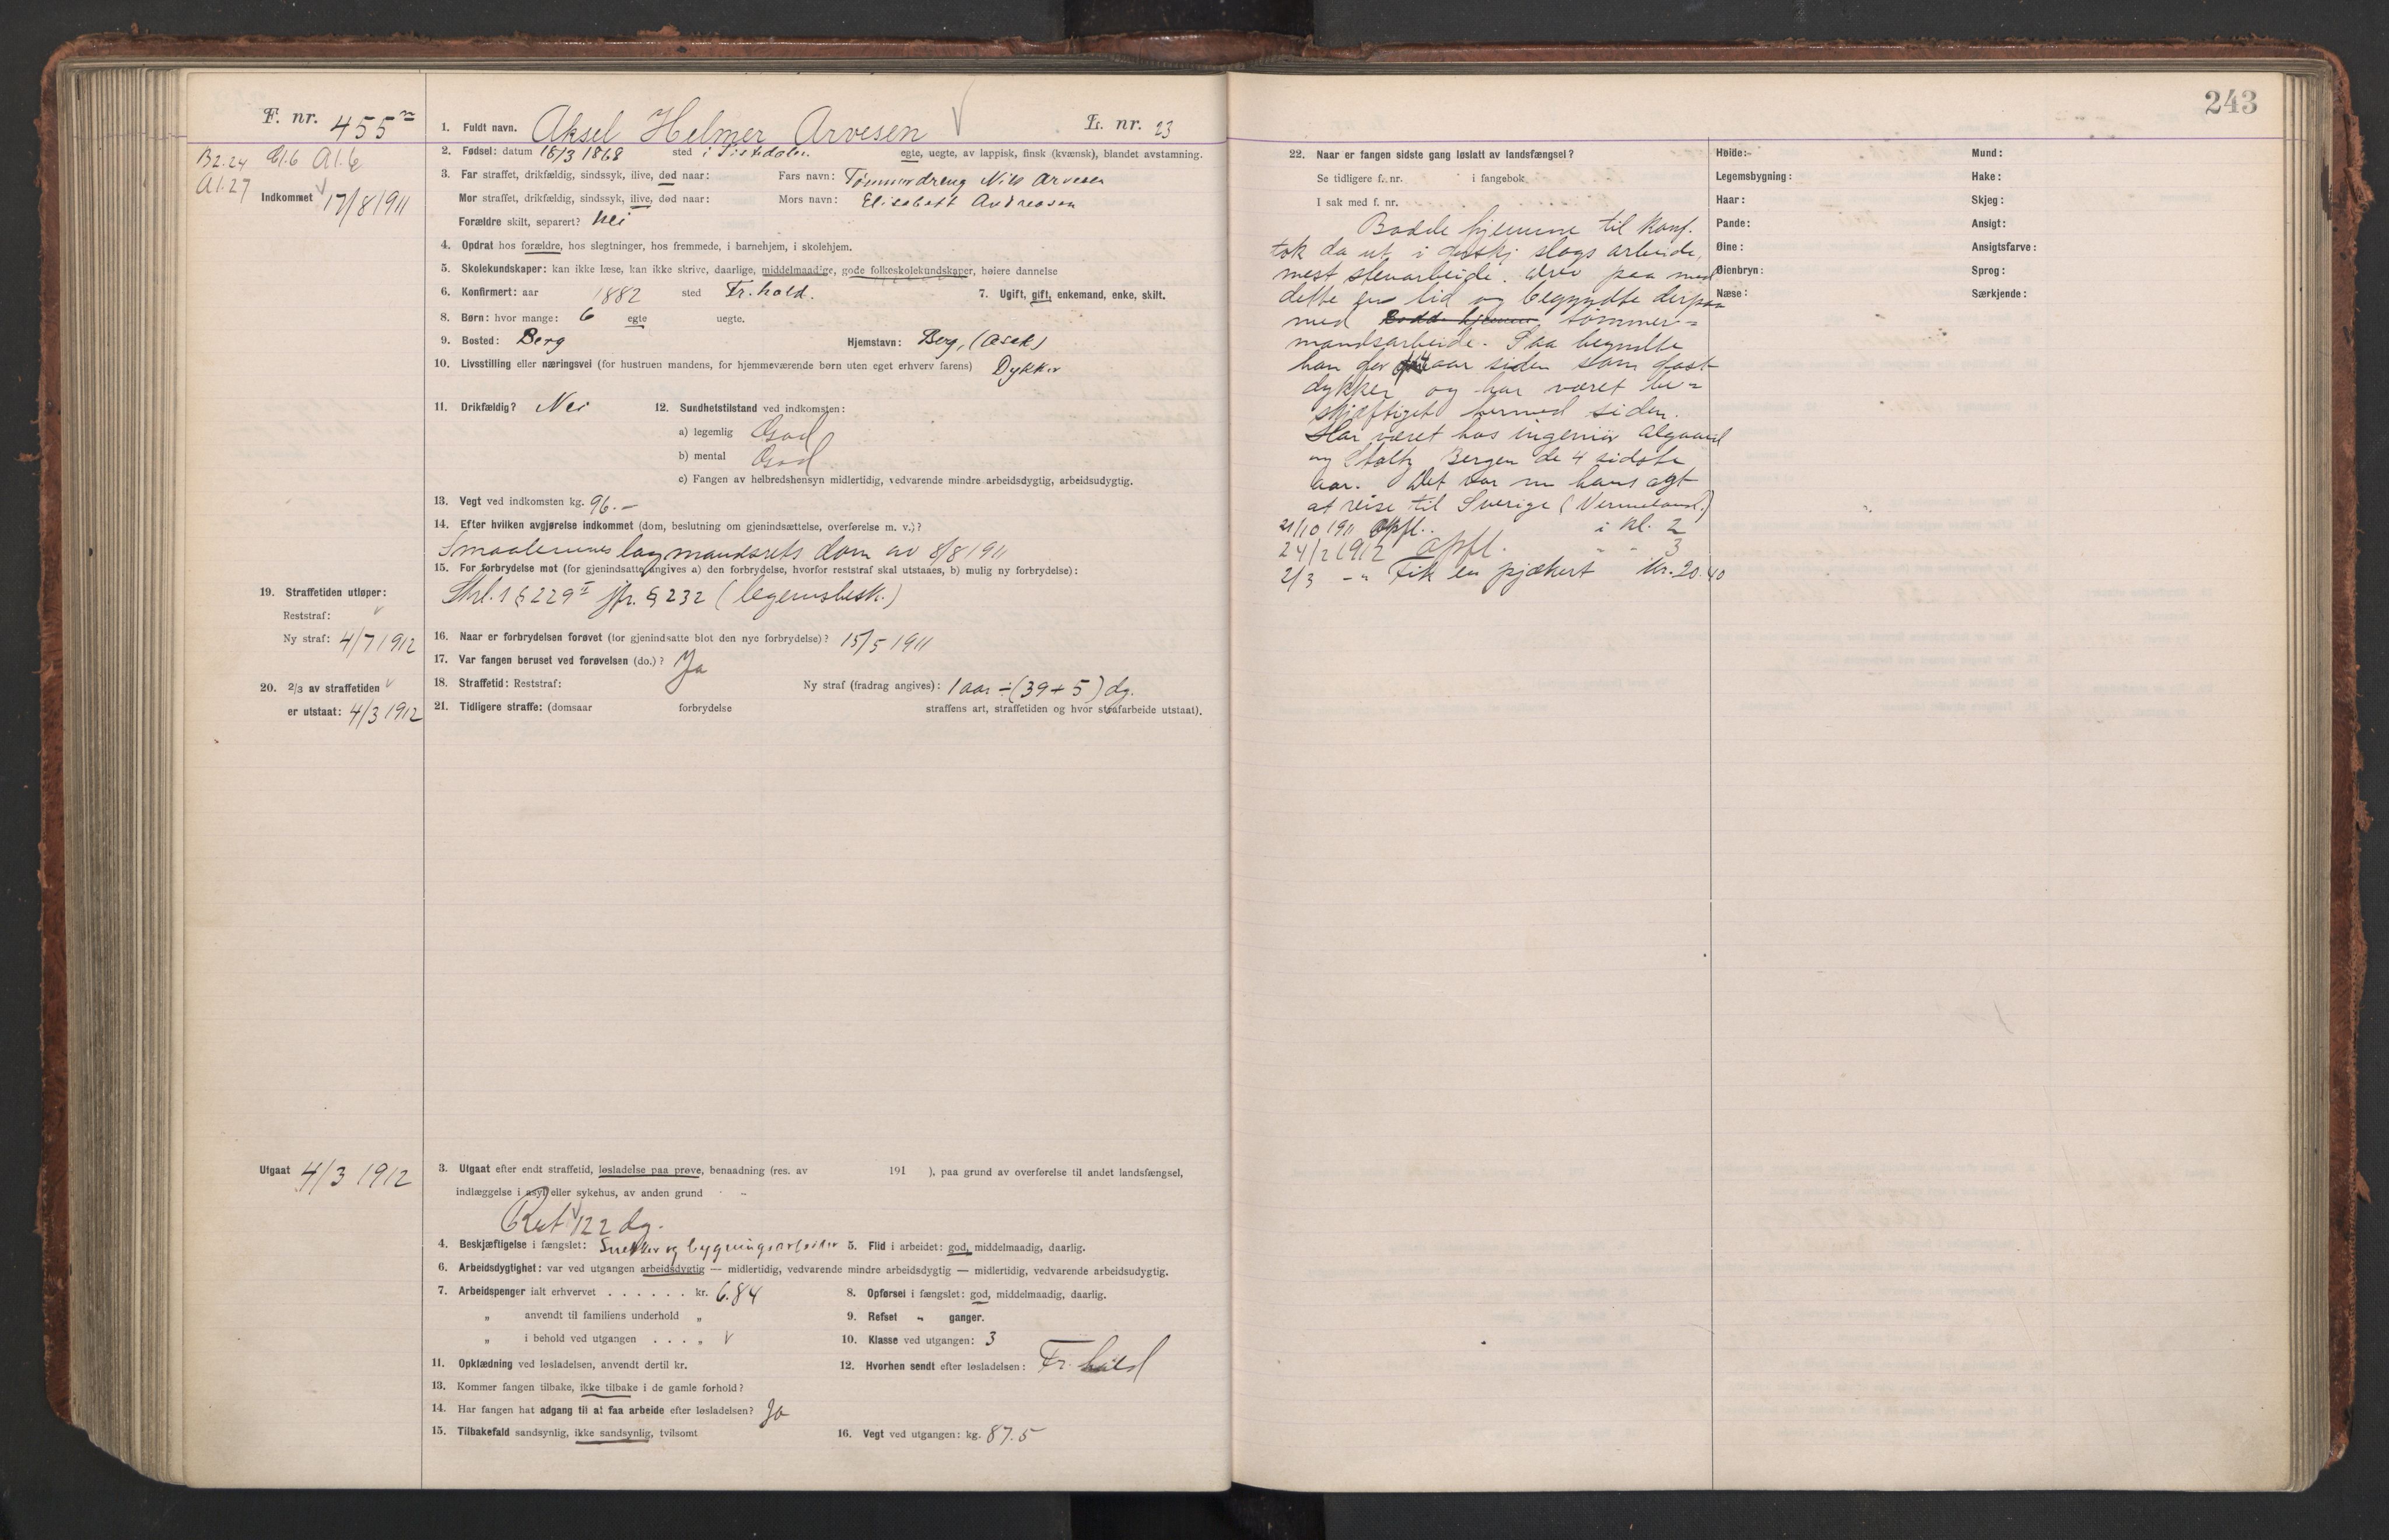 F. nr. 455
B2.24 A1.6
A1.27
Indkommet 17/8 1911
1. Fuldt navn. Aksel Helmer Arvesen L. nr. 23
2. Fødsel: datum 18/3 1868 sted i Tistedalen egte, uegte, av lappisk, finsk (kvænsk), blandet avstamning.
3. Far straffet, drikfældig, sindssyk, ilive, død naar: Fars navn: Tømmerdreng Nils Arvesen
Mor straffet, drikfældig, sindssyk, ilive, død naar: Mors navn: Elisabett Andreasen
Forældre skilt, separert? Nei
4. Opdrat hos forældre, hos slegtninger, hos fremmede, i barnehjem, i skolehjem.
5. Skolekundskaper: kan ikke læse, kan ikke skrive, daarlige, middelmaadige, gode folkeskolekundskaper, høiere dannelse
6. Konfirmert: aar 1882 sted Fr.hald. 7. Ugift, gift, enkemand, enke, skilt.
8. Børn: hvor mange: 6 egte uegte.
9. Bosted: Berg Hjemstavn: Berg, (Asak)
10. Livsstilling eller næringsvei (for hustruen mandens, for hjemmeværende børn uten eget erhverv farens) Dykker
11. Drikfældig? Nei 12. Sundhetstilstand ved indkomsten:
a) legemlig God
b) mental God
c) Fangen av helbredshensyn midlertidig, vedvarende mindre arbeidsdygtig, arbeidsudygtig.
13. Vegt ved indkomsten kg. 96.-
14. Efter hvilken avgjørelse indkommet (dom, beslutning om gjenindsættelse, overførelse m. v.)?
Smaalenenes lagmandsrets dom av 8/8 1911
15. For forbrydelse mot (for gjenindsatte angives a) den forbrydelse, hvorfor reststraf skal utstaaes, b) mulig ny forbrydelse):
Strl. § 229 I jfr. § 232 (legemsbesk.)
19. Straffetiden utløper:
Reststraf:
Ny straf: 4/7 1912
16. Naar er forbrydelsen forøvet (for gjenindsatte blot den nye forbrydelse)? 15/5 1911
17. Var fangen beruset ved forøvelsen (do.)? Ja
20. 2/3 av straffetiden
er utstaat: 4/3 1912
18. Straffetid: Reststraf: Ny straf (fradrag angives): 1 aar ÷ (39 + 5) dg.
21. Tidligere straffe: (domsaar forbrydelse straffens art, straffetiden og hvor strafarbeide utstaat).
Utgaat 4/3 1912
3. Utgaat efter endt straffetid, løsladelse paa prøve, benaadning (res. av 191 ), paa grund av overførelse til andet landsfængsel,
indlæggelse i asyl eller sykehus, av anden grund
Rest 122 dg.
4. Beskjæftigelse i fængslet: Snekker og bygningsarbeider 5. Flid i arbeidet: god, middelmaadig, daarlig.
6. Arbeidsdygtighet: var ved utgangen arbeidsdygtig — midlertidig, vedvarende mindre arbeidsdygtig — midlertidig, vedvarende arbeidsudygtig.
7. Arbeidspenger ialt erhvervet . . . . . . kr. 6.84 8. Opførsel i fængslet: god, middelmaadig, daarlig.
„ anvendt til familiens underhold „ 9. Refset „ ganger.
„ i behold ved utgangen . . . „ 10. Klasse ved utgangen: 3
11. Opklædning ved løsladelsen, anvendt dertil kr. 12. Hvorhen sendt efter løsladelsen: Fr.hald
13. Kommer fangen tilbake, ikke tilbake i de gamle forhold?
14. Har fangen hat adgang til at faa arbeide efter løsladelsen? Ja
15. Tilbakefald sandsynlig, ikke sandsynlig, tvilsomt 16. Vegt ved utgangen: kg. 87.5
243
22. Naar er fangen sidste gang løslatt av landsfængsel?
Se tidligere f. nr. i fangebok
I sak med f. nr.
Bodde hjemme til Konf.
tok da ut i forskj slags arbeide,
mest stenarbeide. Drev paa med
dette en tid og begyndte derpaa
med Bodde hjemme tømmer=
mandsarbeide. Saa begyndte
han for 14 aar siden som
dykker og har været be=
skjæftiget hermed siden.
Har været hos ingeniør Algaard
og Stoltz Bergen de 4 sidste
aar. Det var nu hans agt
at reise til Sverige (Vermeland.)
21/10 1911 Opfl. i Kl. 2
24/2 1912 Opfl. " " 3
2/3 -„ Fik en pjækert Kr. 20.40
Høide:
Legemsbygning:
Haar:
Pande:
Øine:
Øienbryn:
Næse:
Mund:
Hake:
Skjeg:
Ansigt:
Ansigtsfarve:
Sprog:
Særkjende: